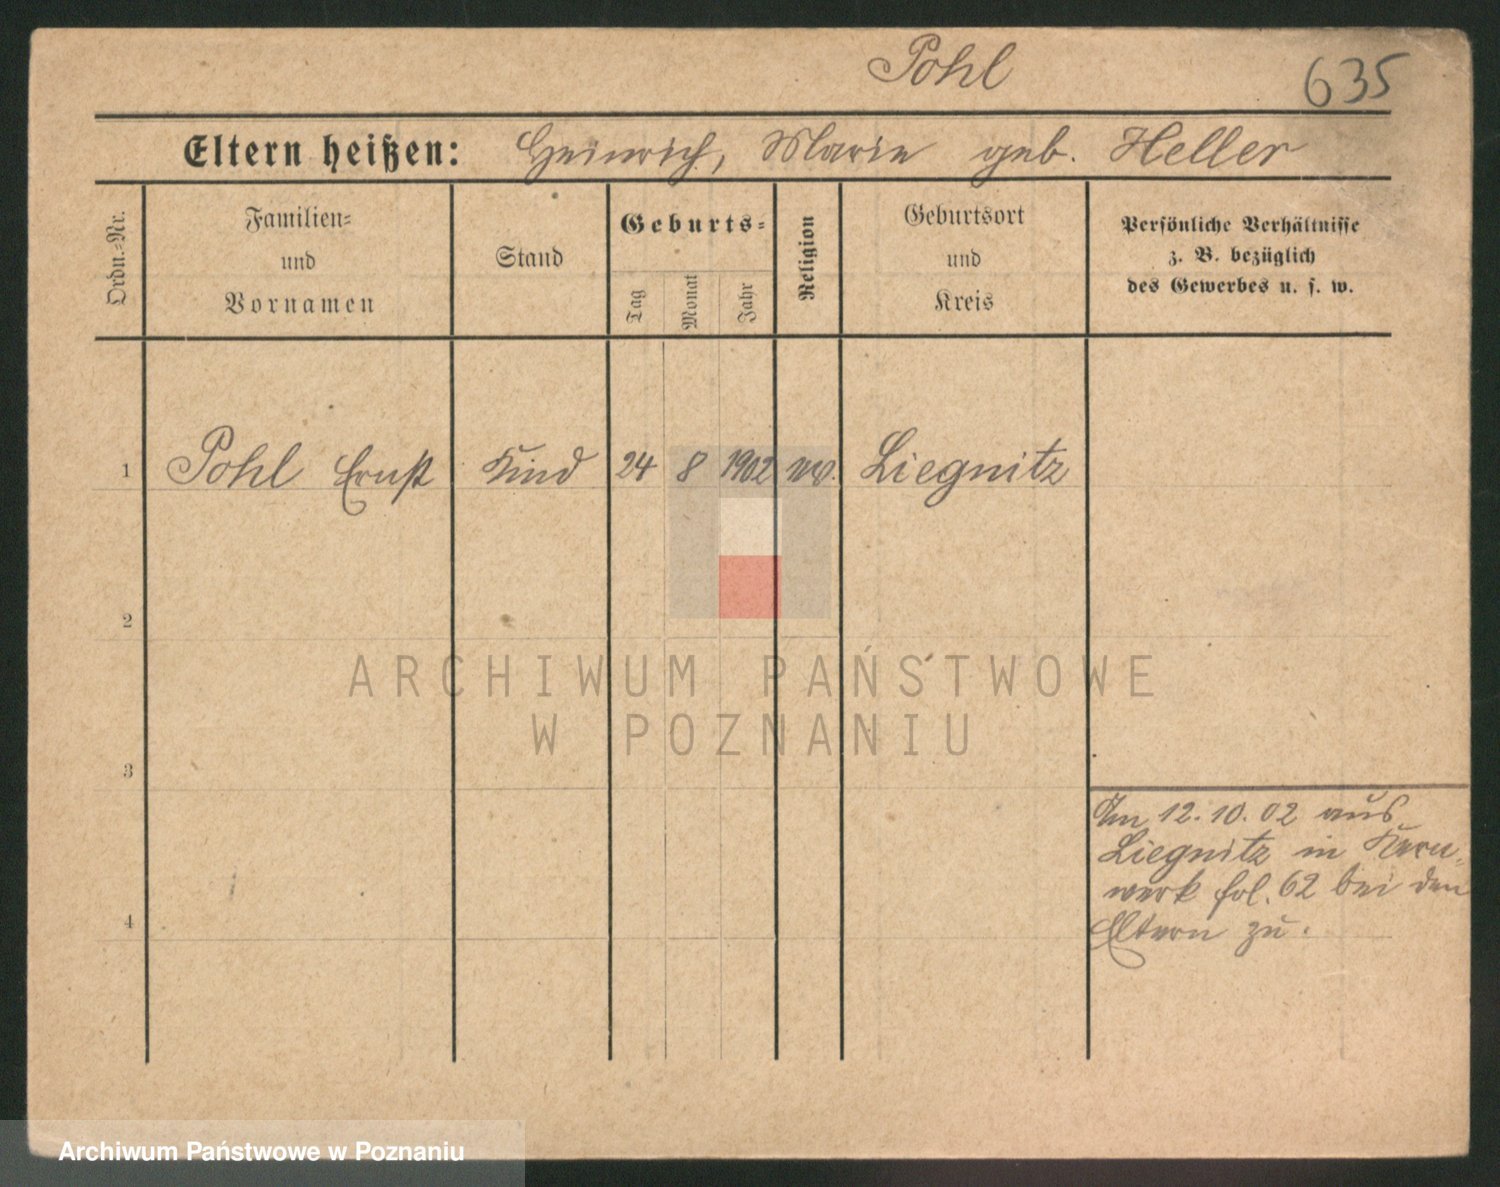 Pohl
635
Eltern heißen: Heinrich, Marie geb. Heller
Ordn.-Nr.
Familien-
und
Vornamen
Stand
Geburts-
Tag
Monat
Jahr
Religion
Geburtsort
und
Kreis
Persönliche Verhältnisse
z. B. bezüglich
des Gewerbes u. s. w.
1 Pohl Ernst Kind 24 8 1902 Liegnitz
2
3
4
Am 12.10.02 aus
Liegnitz in Kern-
werk fol. 62 bei den
Eltern zu.
ARCHIWUM PAŃSTWOWE
W POZNANIU
Archiwum Państwowe w Poznaniu